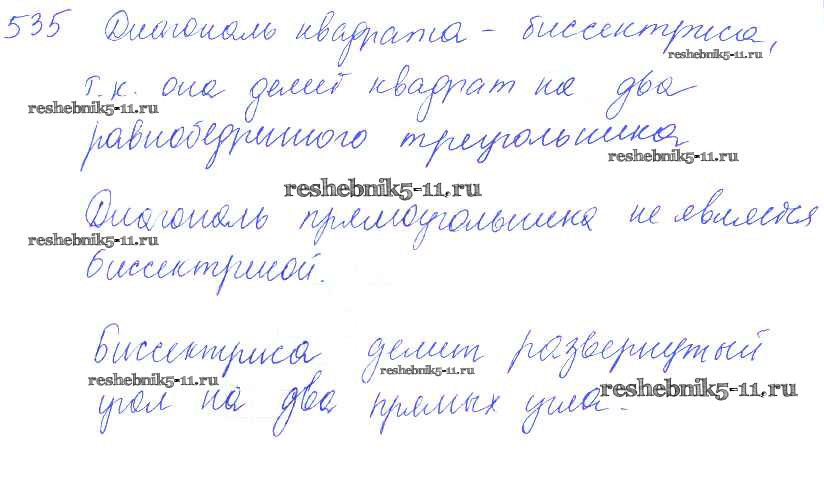 535 Диагональ квадрата - биссектриса,
reshebnik5-11.ru
т.к. она делит квадрат на два
reshebnik5-11.ru
равнобедренного треугольника
reshebnik5-11.ru
reshebnik5-11.ru
Диагональ прямоугольника не является
reshebnik5-11.ru
биссектрисой.
Биссектриса делит развернутый
reshebnik5-11.ru
reshebnik5-11.ru
reshebnik5-11.ru
угол на два прямых угла.